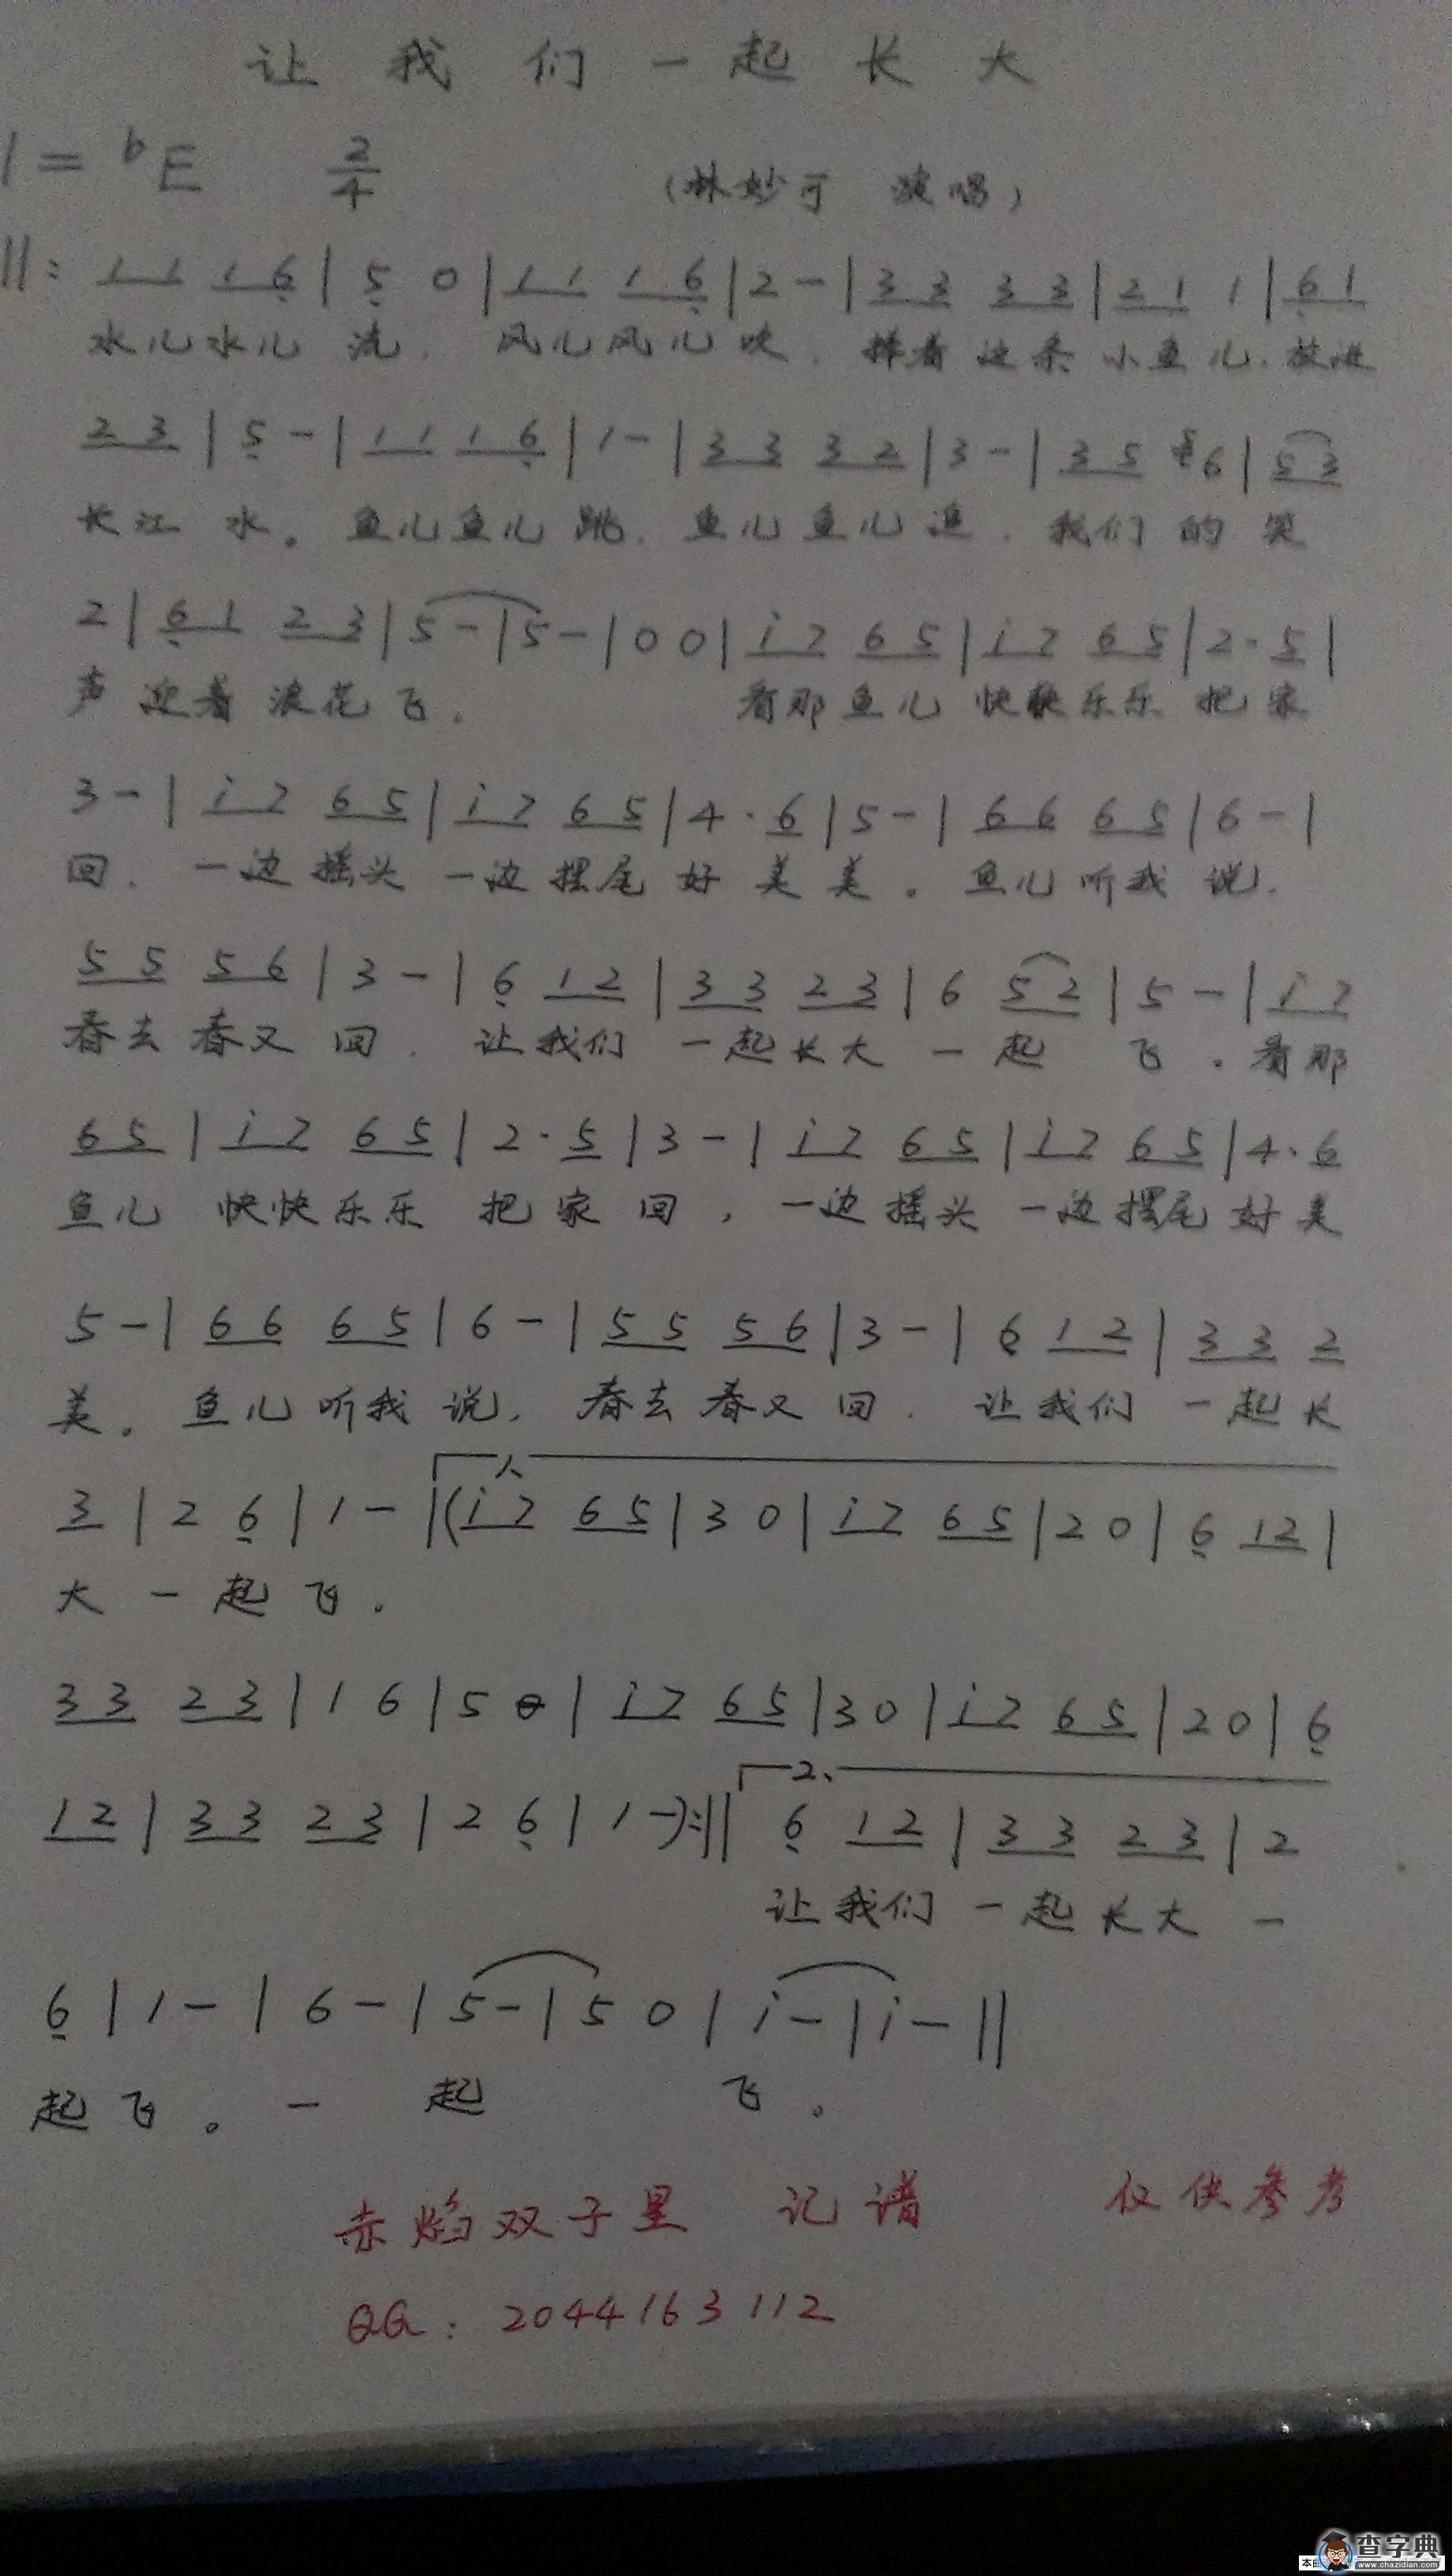 让我们一起长大
1=bE 2/4 (林妙可 演唱)
||: 1 1 1 6 | 5 0 | 1 1 1 6 | 2 - | 3 3 3 3 | 2 1 1 | 6 1
水儿水儿 流. 风儿风儿吹. 捧着这条小鱼儿. 放进
2 3 | 5 - | 1 1 1 6 | 1 - | 3 3 3 2 | 3 - | 3 5 6 | 5 3
长江 水。鱼儿鱼儿 跳. 鱼儿鱼儿追. 我们的 笑
2 | 6 1 2 3 | 5 - | 5 - | 0 0 | i 7 6 5 | i 7 6 5 | 2 · 5 |
声 迎着 浪花飞. 看那鱼儿 快快乐乐 把家
3 - | i 7 6 5 | i 7 6 5 | 4 · 6 | 5 - | 6 6 6 5 | 6 - |
回. 一边摇头 一边摆尾 好美美。鱼儿听我说.
5 5 5 6 | 3 - | 6 1 2 | 3 3 2 3 | 6 5 2 | 5 - | i 7
春去春又回. 让我们 一起长大 一起 飞. 看那
6 5 | i 7 6 5 | 2 · 5 | 3 - | i 7 6 5 | i 7 6 5 | 4 · 6
鱼儿 快快乐乐 把家回, 一边摇头 一边摆尾 好美
5 - | 6 6 6 5 | 6 - | 5 5 5 6 | 3 - | 6 1 2 | 3 3 2
美. 鱼儿听我说, 春去春又回. 让我们 一起长
1、
3 | 2 6 | 1 - | (i 7 6 5 | 3 0 | i 7 6 5 | 2 0 | 6 1 2 |
大 一起飞.
3 3 2 3 | 1 6 | 5 0 | i 7 6 5 | 3 0 | i 7 6 5 | 2 0 | 6
2、
1 2 | 3 3 2 3 | 2 6 | 1 -) :|| 6 1 2 | 3 3 2 3 | 2
让我们 一起长大 一
6 | 1 - | 6 - | 5 - | 5 0 | i - | i - ||
起飞。一 起 飞。
赤焰双子星 记谱 仅供参考
QQ: 2044163112
查字典
www.chazidian.com